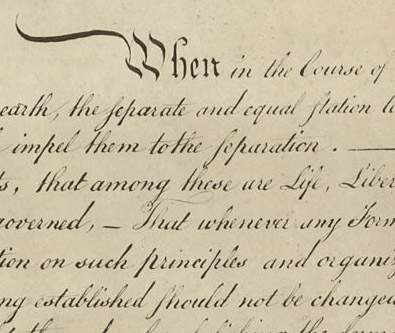 When in the Course of
earth, the ſeparate and equal ſtation to
impel them to the ſeparation . —
that among these are Life, Liber
governed, — That whenever any Form
tion on such principles and organiz
ng established ſhould not be changed